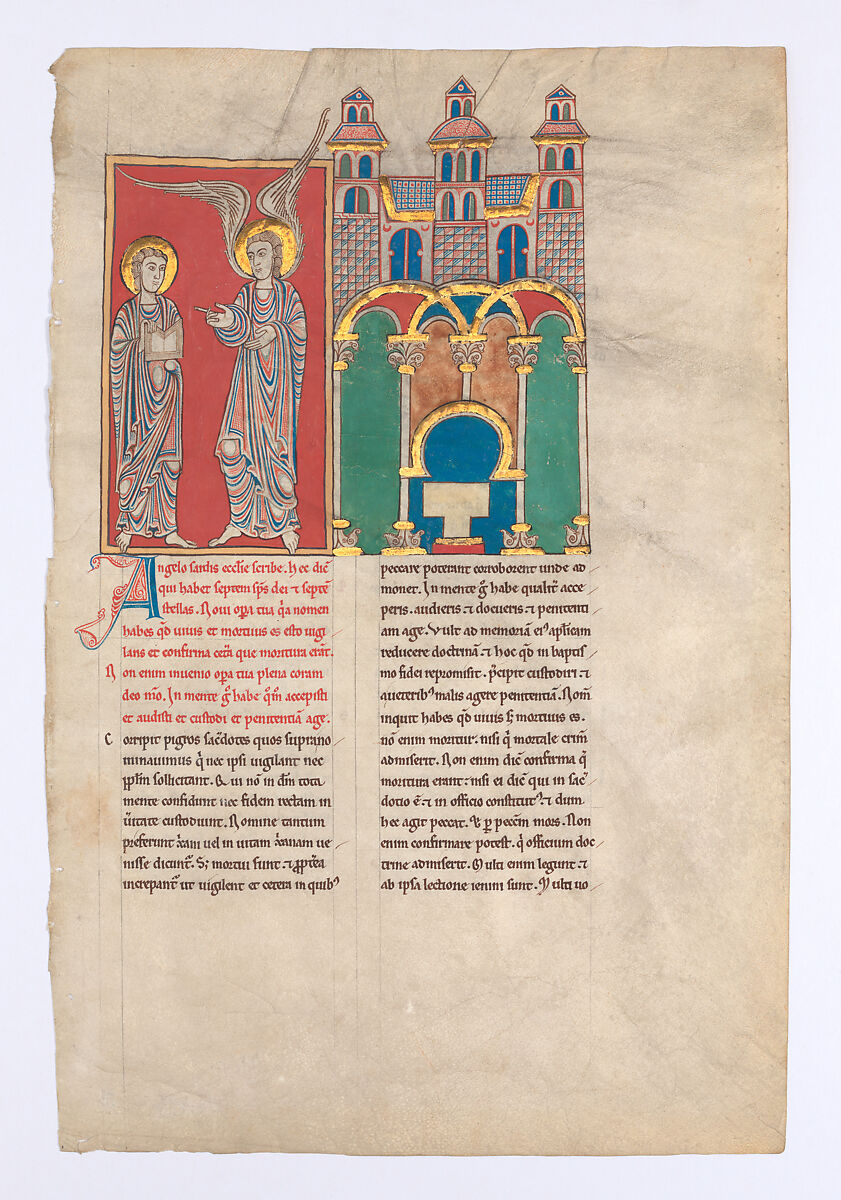 Angelo sardis ecclie scribe. hec dic̄
qui habet septem sp̄s dei ⁊ septē
stellas. Noui op̄a tua q̄a nomen
habes qđ uiuis et mortuus es esto uigi
lans et confirma cet̄a que moritura erāt.
Non enim inuenio op̄a tua plena coram
deo m̄o. In mente g̊ habe q̄m̄ accepisti
et audisti et custodi et penitentiā age.
Corripit pigros sac̄dotes quos supra no
minauimus q̄ nec ipsi uigilant nec
sollicitant. Qui nō in dn̄m tota
mente confidunt nec fidem rectam in
ūitate custodiunt. Nomine tantum
preferunt xp̄ani uel in uitam xp̄ianam ue
nisse dicunt̄. S; mortui sunt. ⁊ p̄pt̄ea
increpant̄ ut uigilent et cetera in quibꝰ
peccare poterant corroborent unde ad
monet. In mente g̊ habe qualit̄ acce
peris. audieris ⁊ docueris ⁊ penitenti
am age. Vult ad memoriā eiꝰ ap̄licam
reducere doctrinā. ⁊ hoc qđ in baptis
mo fidei repromisit. p̄cipit custodiri. ⁊
a ueteribꝰ malis agere penitentiā. Nom̄
inquit habes qđ uiuis s; mortuus es.
nō enim moritur. nisi q̄ mortale crim̄
admiserit. Non enim dic̄ confirma q̄
moritura erant. nisi ei dic̄ qui in sac̄
dotio ē. ⁊ in officio constitutꝰ. ⁊ dum
hec agit peccat. Et p̄ pecc̄m mors. Non
enim confirmare potest. q̄ officium doc
trine admiserit. Multi enim legunt ⁊
ab ipsa lectione ieiuni sunt. Multi uo